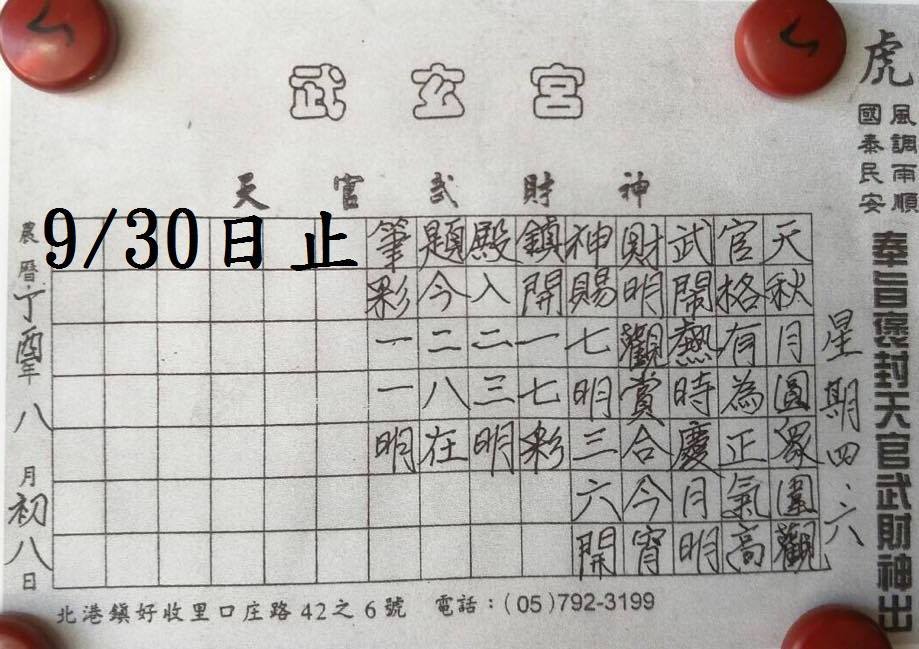 武玄宮
天官武財神
9/30日止
天官武財神鎮殿題筆
秋月圓眾圍觀
格有為正氣高
鬧熱時慶月明
明觀賞合今宵
賜七明三六開
開一七彩
入二三明
今二八在
彩一一明
虎
風調雨順
國泰民安
奉旨褒封天官武財神出
星期四.六
農曆丁酉年八月初八日
北港鎮好收里口庄路42之6號 電話：(05)792-3199